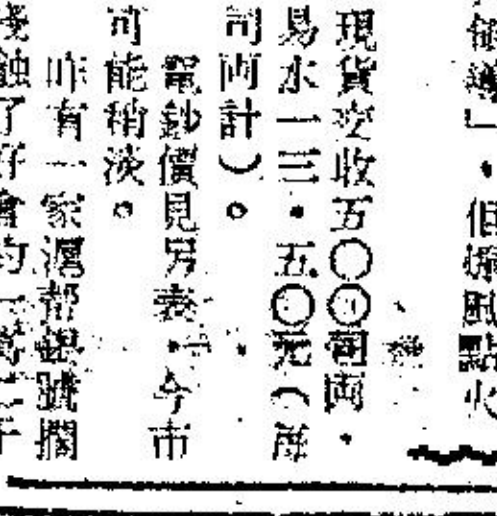 但煽風點火
現貨交收五〇〇司両，
易水一三．五〇元（每
司両計）。
電鈔價見另表，今市
可能稍淡。
昨有一家滬幫銀號擱
淺蝕了好會的一萬二千